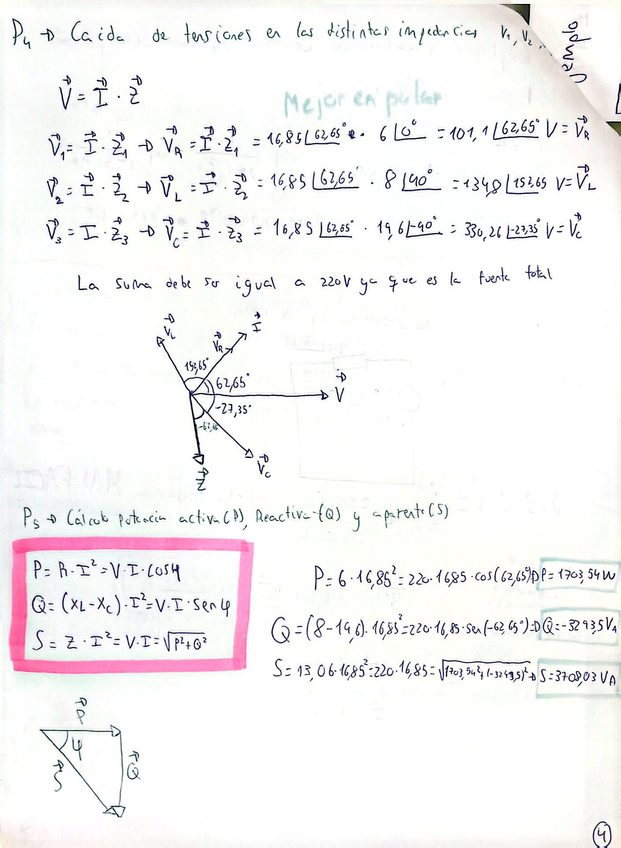 P4 → Caida de tensiones en las distintas impedancias V1, V2,
V⃗ = I⃗ · Z⃗
Mejor en polar
V⃗1 = I⃗ · Z⃗1 → V⃗R = I⃗ · Z⃗1 = 16,85∠62,65° · 6∠0° = 101,1∠62,65° V = V⃗R
V⃗2 = I⃗ · Z⃗2 → V⃗L = I⃗ · Z⃗2 = 16,85∠62,65° · 8∠90° = 134,8∠152,65 V = V⃗L
V⃗3 = I · Z3 → V⃗C = I⃗ · Z⃗3 = 16,85∠62,65° · 19,6∠-90° = 330,26∠-27,35° V = V⃗C
La suma debe ser igual a 220V ya que es la fuente total
V⃗L
V⃗R
I⃗
152,65°
62,65°
V⃗
-27,35°
V⃗C
Z⃗
P5 → Cálculo potencia activa(P), Reactiva(Q) y aparente(S)
P = R · I² = V · I · cosφ
Q = (XL - XC) · I² = V · I · senφ
S = Z · I² = V · I = √P²+Q²
P = 6 · 16,85² = 220 · 16,85 · cos(62,65°) → P = 1703,54W
Q = (8-19,6) · 16,85² = 220 · 16,85 · sen(-62,65°) ⇒ Q = -3293,5VA
S = 13,06 · 16,85² = 220 · 16,85 = √1703,54²+(-3293,5)² → S = 3708,03 VA
P⃗
φ
S⃗
Q⃗
4